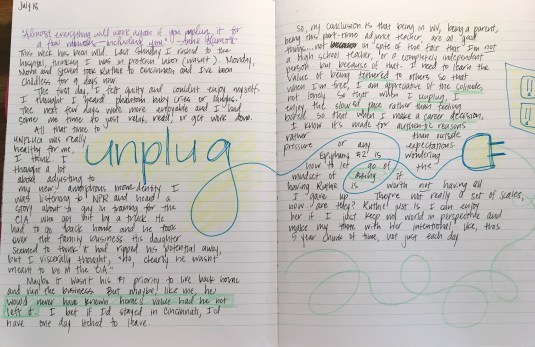 July 18
"Almost everything will work again if you unplug it for
a few minutes - including you." - Anne Lamott
This week has been wild. Last Sunday I rushed to the
hospital, thinking I was in labor (wasn't). Monday,
Mom and took Ruthie to Cincinnati, and I've been
childless for 9 days now.
The first day, I felt guilty and couldn't enjoy myself.
I thought I heard phantom baby cries or
The next few days were more enjoyable and I had
some me time to just relax, read, or get work done.
All that time to
unplug was really
healthy for me,
I think. I
thought a lot
about adjusting to
my new, amorphous mom-identity. I
was listening to NPR and heard a
story about a guy in training for the
CIA who got hit by a truck. He
had to go back home and he took
over the family business. His daughter
seemed to think it had ripped his potential away,
but I viscerally thought, "No, clearly he wasn't
meant to be in the CIA."
Maybe it wasn't his #1 priority to live back home
and run the business. But maybe, like me, he
would never have known home's value had he not
left it. I bet if I'd stayed in Cincinnati, I'd
have one day itched to leave.
unplug
So, my conclusion is that being in WV, being a parent,
being this part-time adjunct teacher, are all good
things... not in spite of the fact that I'm not
a high school teacher, or a completely independent
person but because of that. I need to learn the
value of being tethered to others so that
when I'm free, I am appreciative of the solitude,
not lonely. So that when I unplug, I
enjoy the slowed pace rather than feeling
bored. So that when I make a career decision,
I know it's made for authentic reasons
rather than outside
pressure or any expectations.
Epiphany #2 is wondering
how to let go of the
mindset of asking if
having Ruthie is worth not having all
I "gave up". They're not really a set of scales,
now are they? Ruthie was to I can enjoy
her if I just keep my world in perspective and
make my time with her intentional. Like, this
5 year chunk of time, not just each day